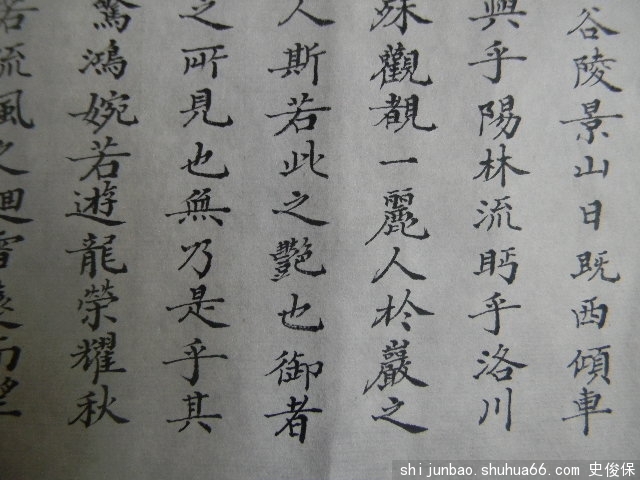 谷陵景山日既西傾車
興乎陽林流眄乎洛川
殊觀覩一麗人於巖之
人斯若此之艷也御者
之所見也無乃是乎其
驚鴻婉若遊龍榮耀秋
若流風之迴雪遠而望
shijunbao.shuhua66.com 史俊保